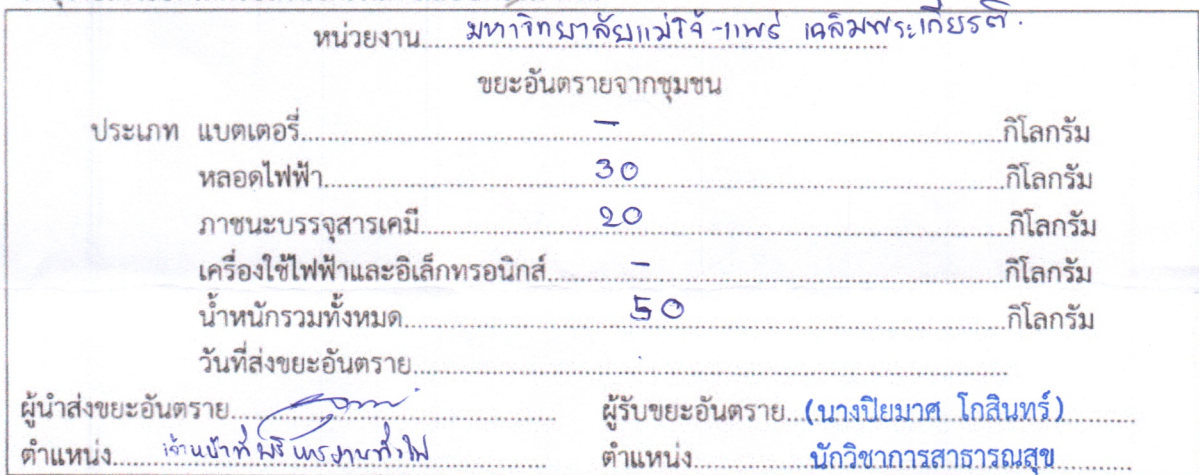 หน่วยงาน..... มหาวิทยาลัยแม่โจ้-แพร่ เฉลิมพระเกียรติ.
ขยะอันตรายจากชุมชน
ประเภท แบตเตอรี่..... - .....กิโลกรัม
หลอดไฟฟ้า..... 30 .....กิโลกรัม
ภาชนะบรรจุสารเคมี..... 20 .....กิโลกรัม
เครื่องใช้ไฟฟ้าและอิเล็กทรอนิกส์..... - .....กิโลกรัม
น้ำหนักรวมทั้งหมด..... 50 .....กิโลกรัม
วันที่ส่งขยะอันตราย.....
ผู้นำส่งขยะอันตราย..... ผู้รับขยะอันตราย..(นางปิยมาศ โกสินทร์).....
ตำแหน่ง..... เจ้าหน้าที่บริหารงานทั่วไป ตำแหน่ง..... นักวิชาการสาธารณสุข